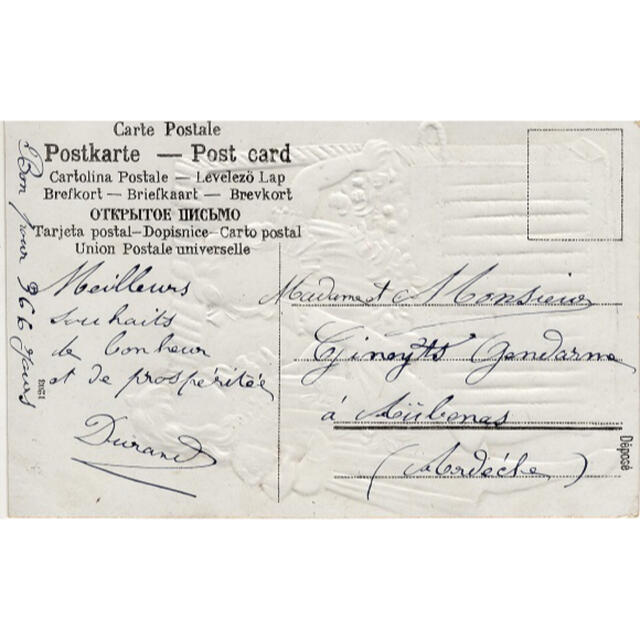 Carte Postale
Postkarte — Post card
Cartolina Postale — Levelező Lap
Brefkort — Briefkaart — Brevkort
ОТКРЫТОЕ ПИСЬМО
Tarjeta postal—Dopisnice—Carto postal
Union Postale universelle
Bon pour 366 jours
Meilleurs
souhaits
de bonheur
et de prospéritée
Durand
Madame et Monsieur
Gendarme
à Aübenas
(Ardèche)
Déposé